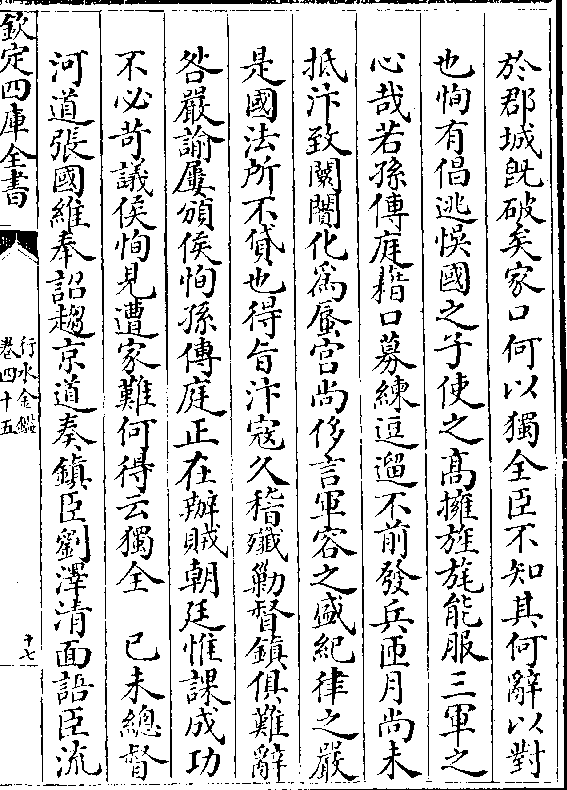 於郡城既破矣家口何以獨全臣不知其何辭以對
也恂有倡逃悞國之子使之髙擁旌旄能服三軍之
心哉若孫傳庭藉口募練逗遛不前發兵匝月尚未
抵汴致闤闠化為蜃宫尚侈言軍容之盛紀律之嚴
是國法所不貸也得㫖汴寇久稽殱勦督鎮俱難辭
咎嚴諭屢頒侯恂孫傳庭正在辦賊朝廷惟課成功
不必苛議侯恂見遭家難何得云獨全　已未總督
河道張國維奉詔趨京道奏鎮臣劉澤清面語臣流
欽定四庫全書
行水金鑑
卷四十五
十七